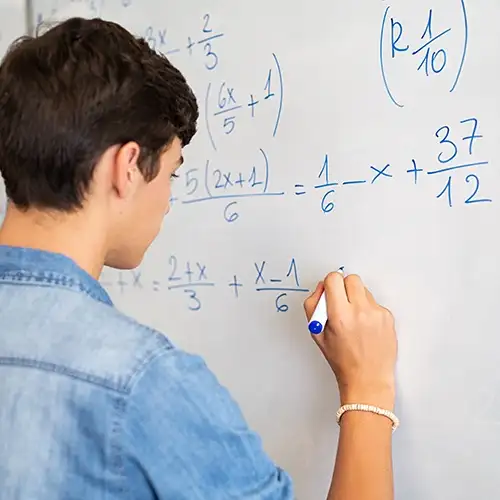 3x + 2/3
(R 1/10)
(6x/5 + 1)
+ 5(2x+1)/6 = 1/6 - x + 37/12
+x = 2+x/3 + x-1/6